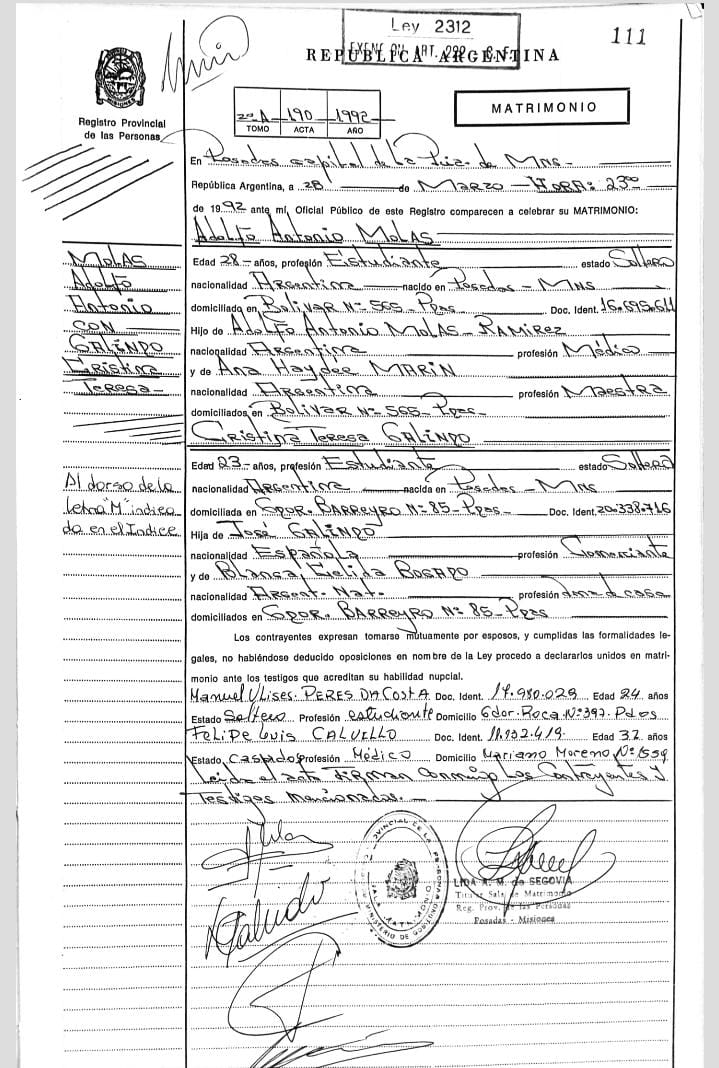 Ley 2312
EXENE ON ART. 292 C.F.
111
REPUBLICA ARGENTINA
MISIONES
Registro Provincial
de las Personas
2º A 190 1992
TOMO ACTA AÑO
MATRIMONIO
En Posadas capital de la Pcia. de MNS-
República Argentina, a 28 de Marzo - HORA: 23⁰⁰
de 1992 ante mí, Oficial Público de este Registro comparecen a celebrar su MATRIMONIO:
Adolfo Antonio MOLAS
Edad 28- años, profesión Estudiante estado Soltero
nacionalidad Argentina nacido en Posadas - MNS
domiciliado en Bolivar Nº 565- Pdas Doc. Ident. 16.695.611
Hijo de Adolfo Antonio MOLAS - RAMIREZ
nacionalidad Argentina profesión Médico
y de Ana Haydée MARIN
nacionalidad Argentina profesión Maestra
domiciliados en Bolivar Nº 565- Pdas-
Cristina Teresa GALINDO
Edad 23- años, profesión Estudiante estado Soltera
nacionalidad Argentina nacida en Posadas - MNS
domiciliada en Gdor. BARREYRO Nº 85- Pdas- Doc. Ident. 20.338.716
Hija de José GALINDO
nacionalidad Española profesión Comerciante
y de Blanca ROSADO
nacionalidad Argent. Nat. profesión dona d casa
domiciliados en Gdor. BARREYRO Nº 85- Pdas
Los contrayentes expresan tomarse mutuamente por esposos, y cumplidas las formalidades le-
gales, no habiéndose deducido oposiciones en nombre de la Ley procedo a declararlos unidos en matri-
monio ante los testigos que acreditan su habilidad nupcial.
Manuel Ulises PERES DA COSTA Doc. Ident. 17.980.029 Edad 24 años
Estado Soltero Profesión estudiante Domicilio Gdor. Roca Nº 397. Pdas
FELIPE Luis CALVELLO Doc. Ident. 11.932.419. Edad 32 años
Estado Casado Profesión Médico Domicilio Mariano Moreno Nº 1559
Leida el acta Firman conmigo Los Contrayentes y
Testigos mencionados.-
MOLAS
Adolfo
Antonio
CON
GALINDO
Cristina
Teresa-
Al dorso de la
letra "M" indica
do en el Indice
PROVINCIAL DE LAS PERSONAS
SALA MATRIMONIO
MINISTERIO DE GOBIERNO
LIDA A. M. de SEGOVIA
Titular Sala de Matrimonio
Reg. Prov. de las Personas
Posadas - Misiones